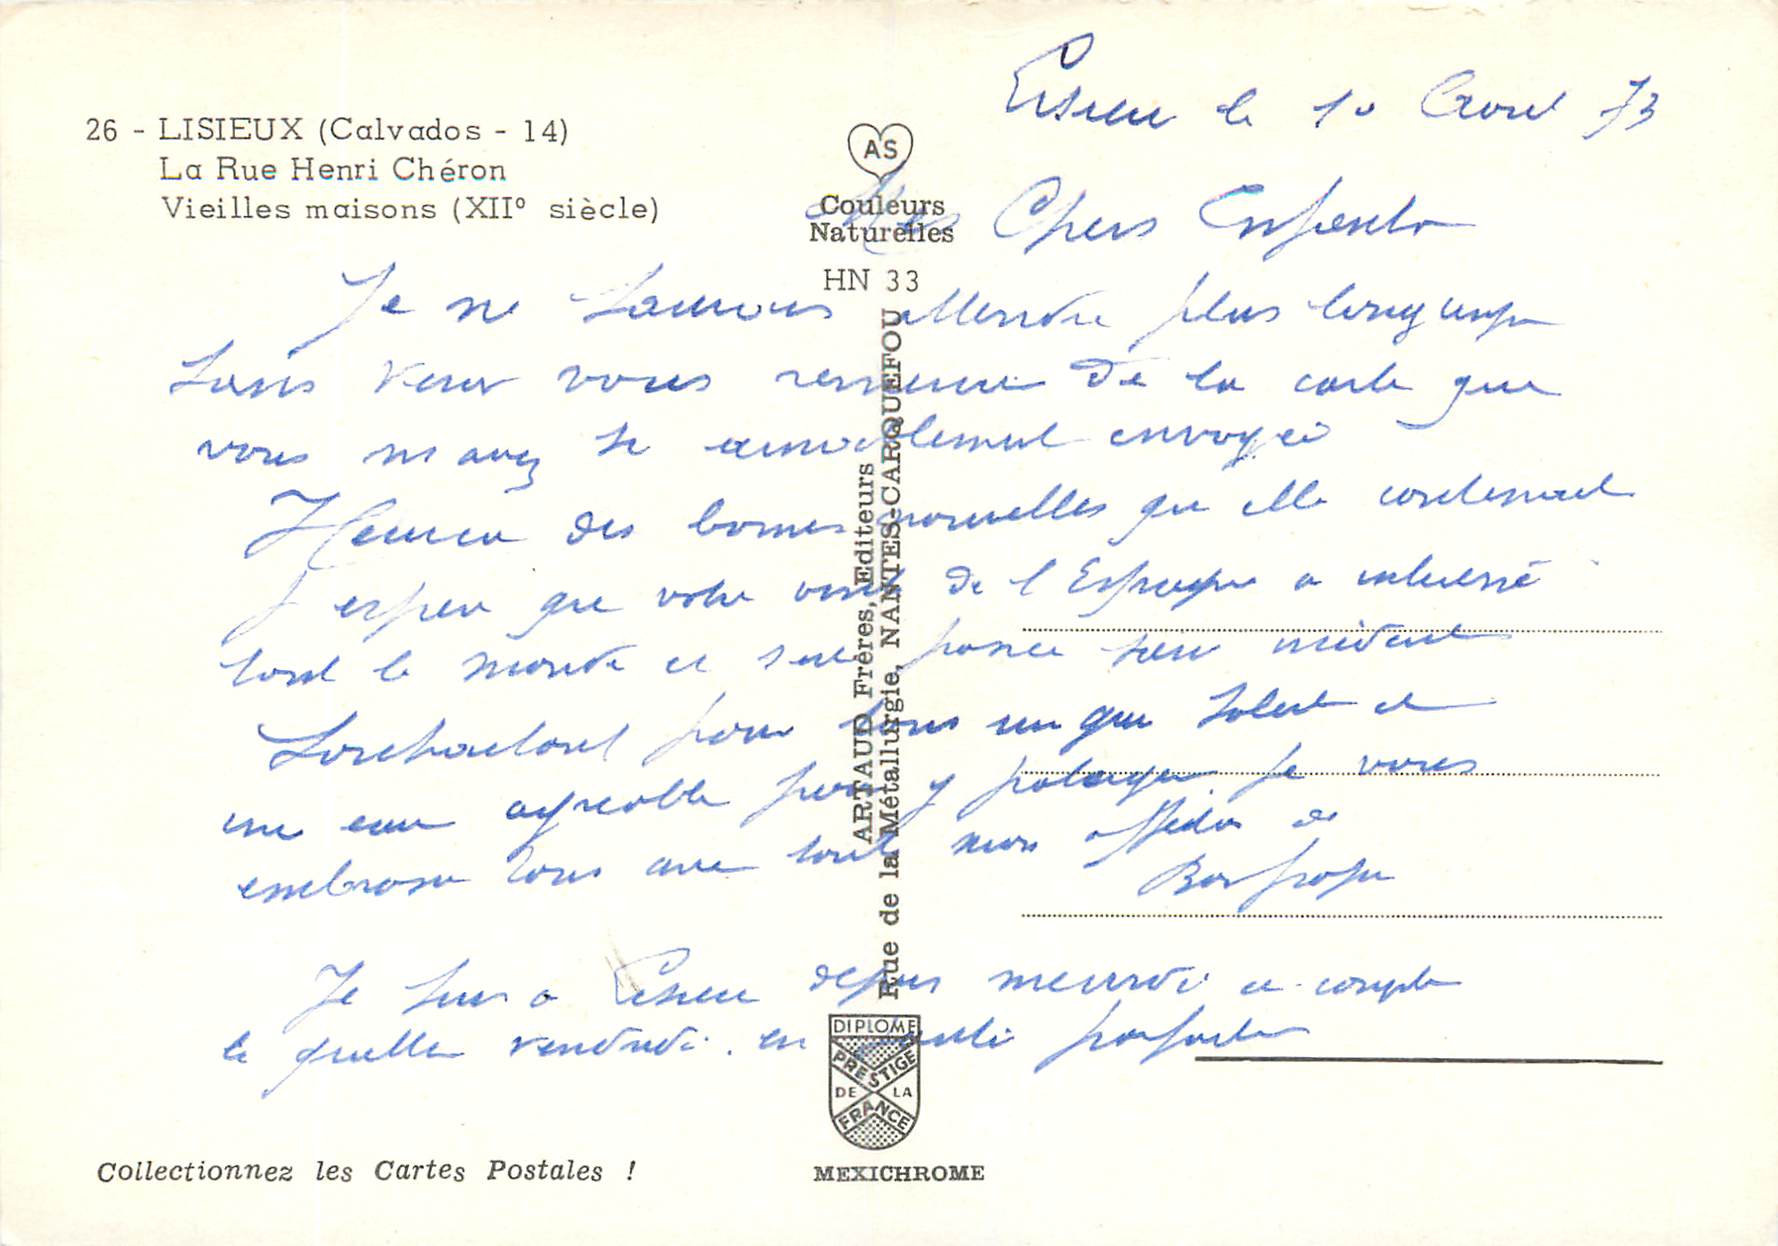 26 - LISIEUX (Calvados - 14)
La Rue Henri Chéron
Vieilles maisons (XIIᵉ siècle)
AS
Couleurs
Naturelles
HN 33
ARTAUD Frères, Editeurs
Rue de la Métallurgie, NANTES-CARQUEFOU
Lisieux le 10 Avril 73
Mes Chers Enfants
Je ne saurais attendre plus longtemps
sans venir vous remercier de la carte que
vous m avez si aimablement envoyée
Heureux des bonnes nouvelles que elle contenait
J espère que votre visite de l Espagne a intéressé
tout le monde et sera
Souhaitant pour tous un gai soleil et
une eau agréable pour y patauger je vous
embrasse tous avec toute mon affection
Bon papa
Je suis a Lisieux depuis mercredi et compte
le quitter vendredi. en santé parfaite
DIPLOME
PRESTIGE
DE LA
FRANCE
MEXICHROME
Collectionnez les Cartes Postales !